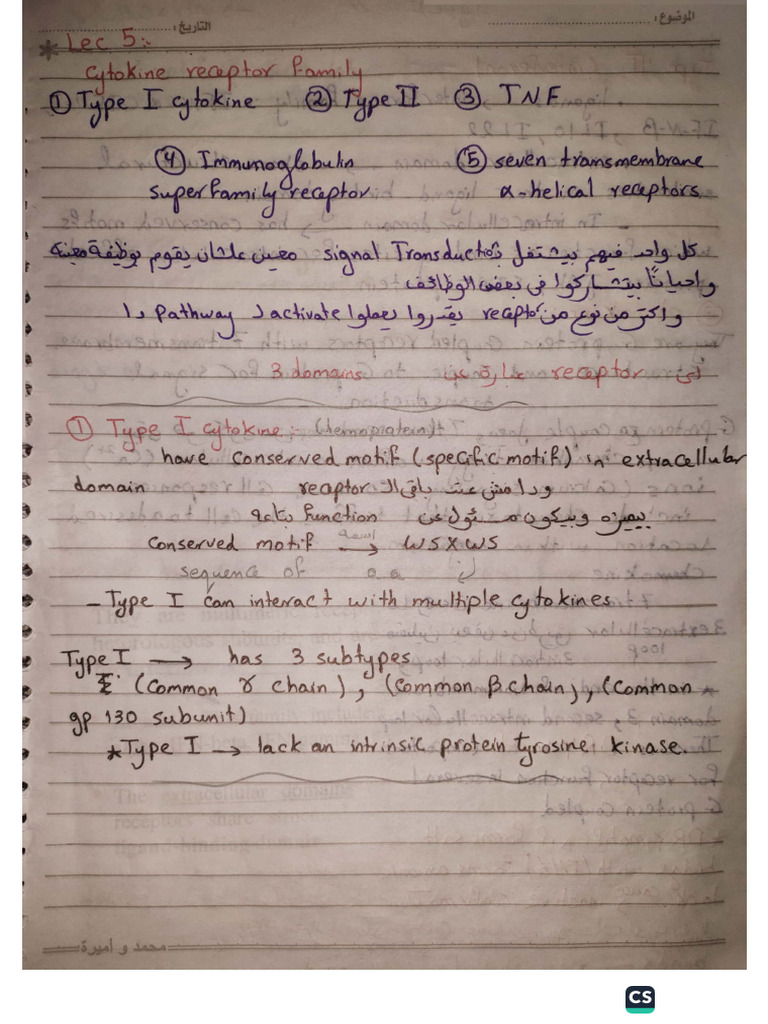 الموضوع:
التاريخ:
* Lec 5:-
cytokine receptor family
① Type I cytokine ② Type II ③ TNF
④ Immunoglobulin superfamily receptor
⑤ seven transmembrane α-helical receptors
كل واحد فيهم بيشتغل بـ signal Transductor معين علشان يقوم بوظيفة معينه
واحياناً بيتشاركوا في بعض الوظائف
واكتر من نوع من receptor يقدروا يعملوا activate لـ Pathway دا
receptor عبارة عن 3 domains
① Type I cytokine:-
have conserved motif (specific motif) in extracellular
domain ودا مش عند باقي الـ receptor
بيميزه وبيكون مسئول عن function بتاعه
conserved motif اسمه → WSXWS
sequence of a.a
- Type I can interact with multiple cytokines
Type I → has 3 subtypes
(Common γ chain), (Common β chain), (Common
gp 130 subunit)
* Type I → lack an intrinsic protein tyrosine kinase.
محمد و اميرة
CS